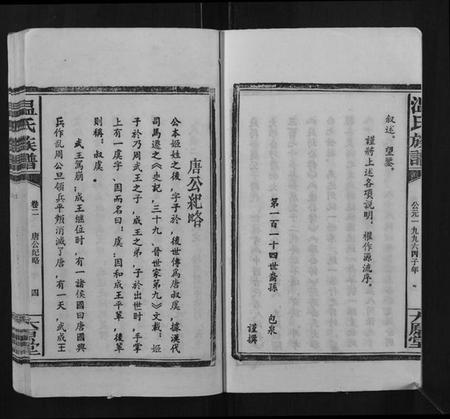 溫氏族譜
公元一九九六丙子年
大原堂
叙述。望鑒。
謹將上述各項說明，權作源流序。
第一百一十四世裔孫 包泉 謹撰
唐公紀略
公本姬姓之後，字子於，後世傳為唐叔虞，據漢代
司馬遷之《史記，三十九、晉世家第九》文載：姬
子於乃周武王之子，成王之弟，子於出世時，手掌
上有一虞字、因而名曰：虞；因和成王平草，後單
則稱：叔虞。
武王駕崩；成王继位时、有一諸侯國曰唐國興
兵作亂周公旦領兵平叛消滅了唐，有一天，武成王
溫氏族譜
卷二 唐公紀略 四